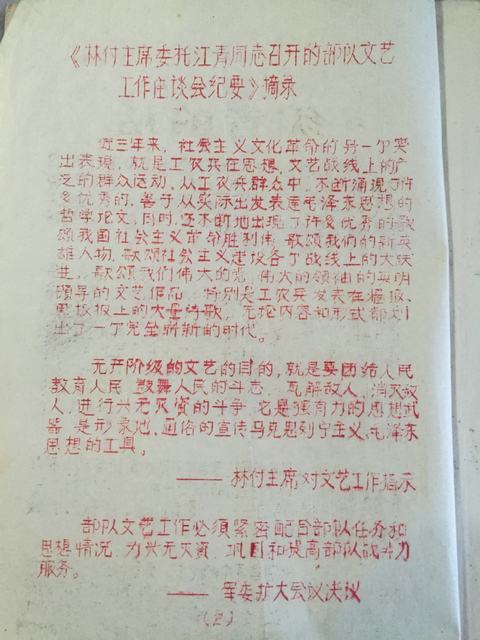 《林付主席委托江青同志召开的部队文艺
工作座谈会纪要》摘录
近三年来，社会主义文化革命的另一个突
出表现，就是工农兵在思想、文艺战线上的广
泛的群众运动。从工农兵群众中，不断涌现了许
多优秀的、善于从实际出发表达毛泽东思想的
哲学论文。同时，还不断地出现了许多优秀的歌
颂我国社会主义革命胜利伟 歌颂我们的新英
雄人物，歌颂社会主义建设各个战线上的大跃
进，歌颂我们伟大的党、伟大的领袖的英明
领导的文艺作品 特别是工农兵发表在墙报、
黑板报上的大量诗歌，无论内容和形式都划
出了一个完全崭新的时代。
无产阶级的文艺的目的，就是要团结人民
教育人民 鼓舞人民的斗志 瓦解敌人 消灭敌
人，进行兴无灭资的斗争 它是强有力的思想武
器 是形象地、通俗的宣传马克思列宁主义、毛泽东
思想的工具。
—— 林付主席对文艺工作指示
部队文艺工作必须紧密配合部队任务和
思想情况，为兴无灭资、巩固和提高部队战斗力
服务。
—— 军委扩大会议决议
（2）